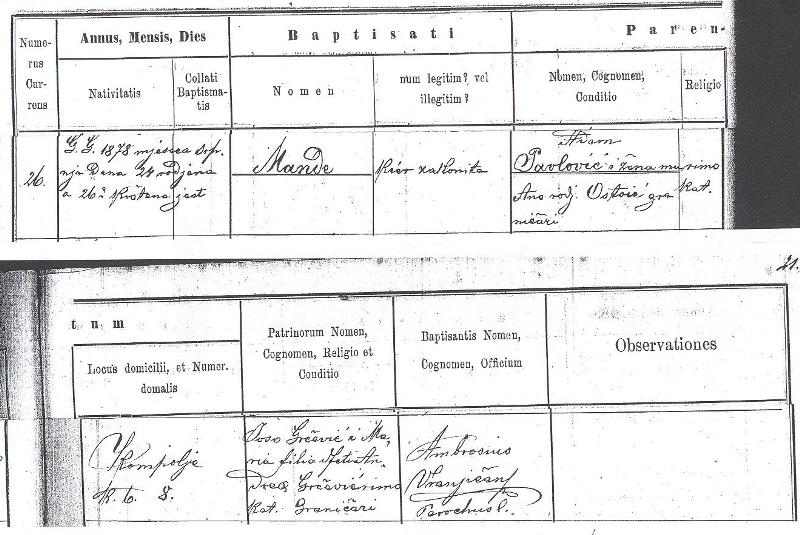 Nume-
rus
Cur-
rens
Annus, Mensis, Dies
Nativitatis
Collati
Baptisma-
tis
Baptisati
Nomen
num legitim? vel
illegitim?
Paren-
Nomen, Cognomen,
Conditio
Religio
26.
G. G. 1878 mjeseca
dana 24 rodjena
a 26 krštena jest
Mande
kćer zakonita
Adam
Pavlović i žena mu
Ana rodj. Ostoić gra
ničari
rimo
kat.
21.
tum
Locus domicilii, et Numer.
domalis
Patrinorum Nomen,
Cognomen, Religio et
Conditio
Baptisantis Nomen,
Cognomen, Officium
Observationes
Kompolje
k. b. 8.
Joso Grčević i Ma,
ria filia An-
Grčević rimo
kat. Graničari
Ambrosius
Vranjičany
Parochus